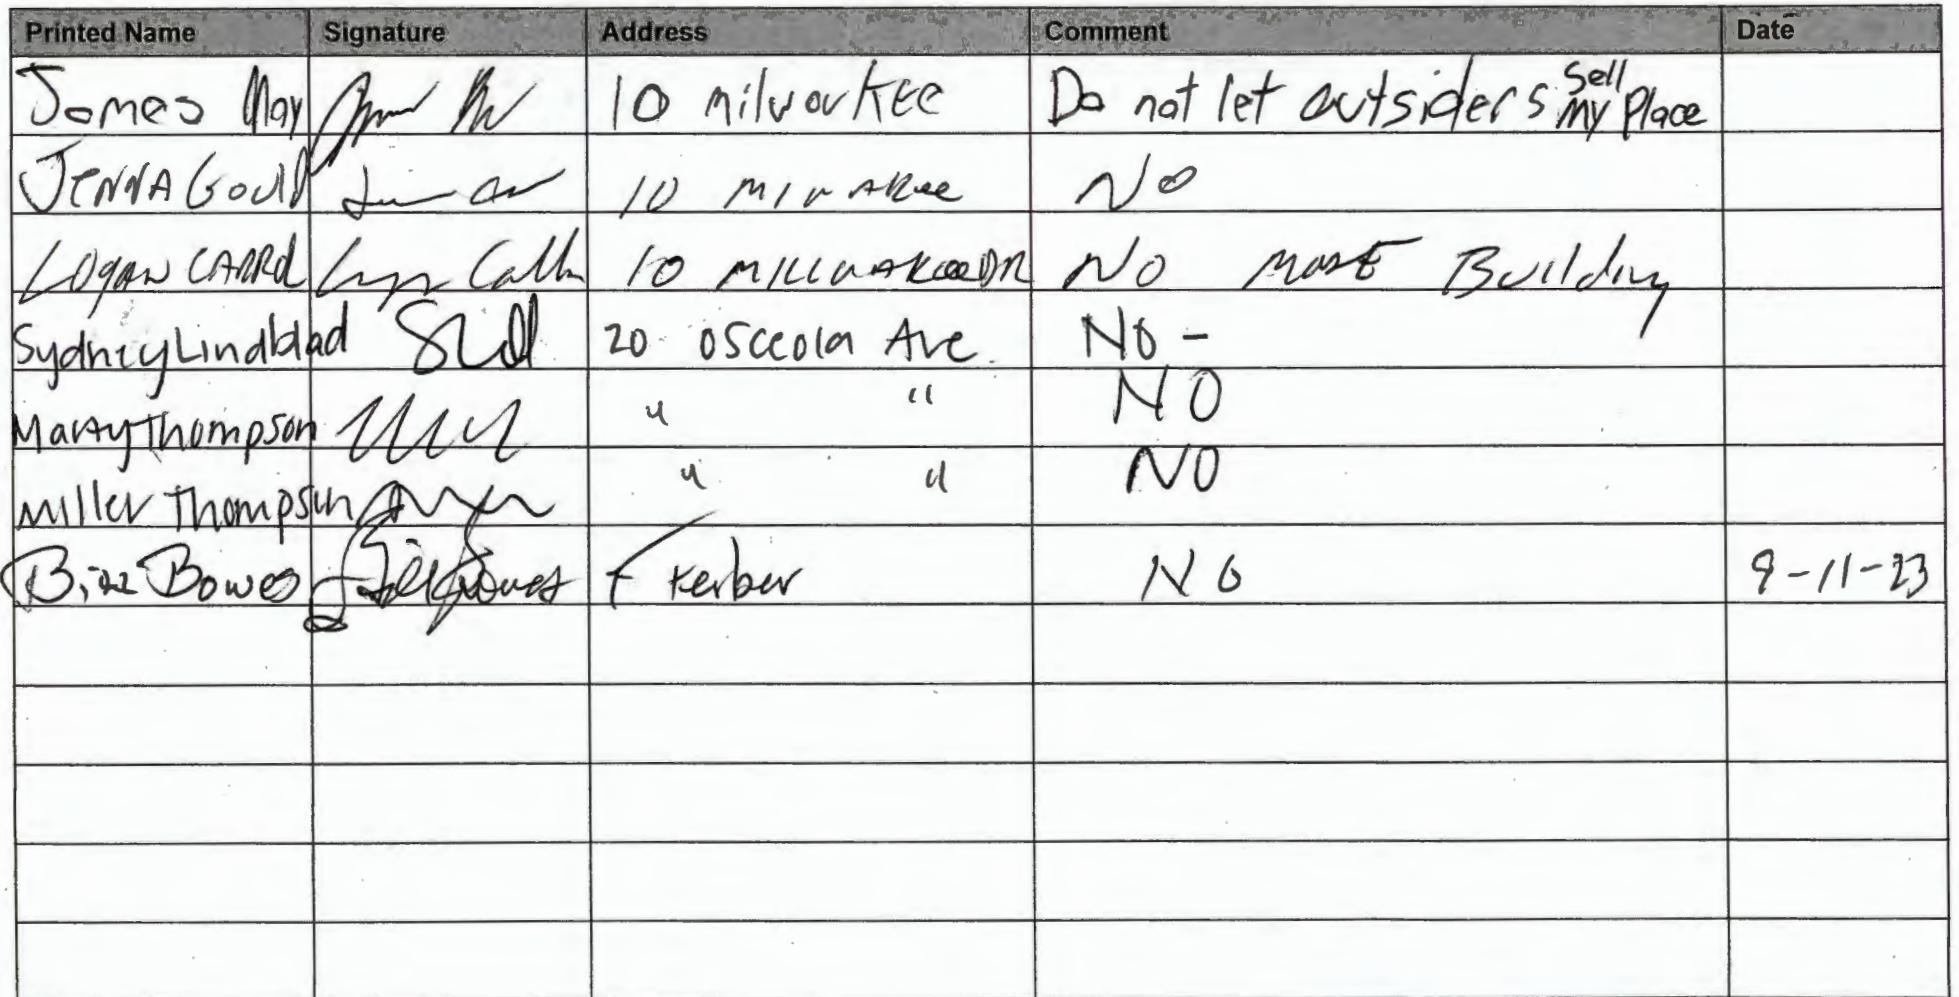 Printed Name Signature Address Comment Date
James May 10 milwaukee Do not let outsiders sell my Place
JENNA Gould 10 No
Logan CARROL 10 MILLWAKEE DR No more Building
Sydney Lindblad 20 Osceola Ave. NO -
Marty Thompson " " NO
Miller Thompson " " NO
Bowes Kerber NO 9-11-23